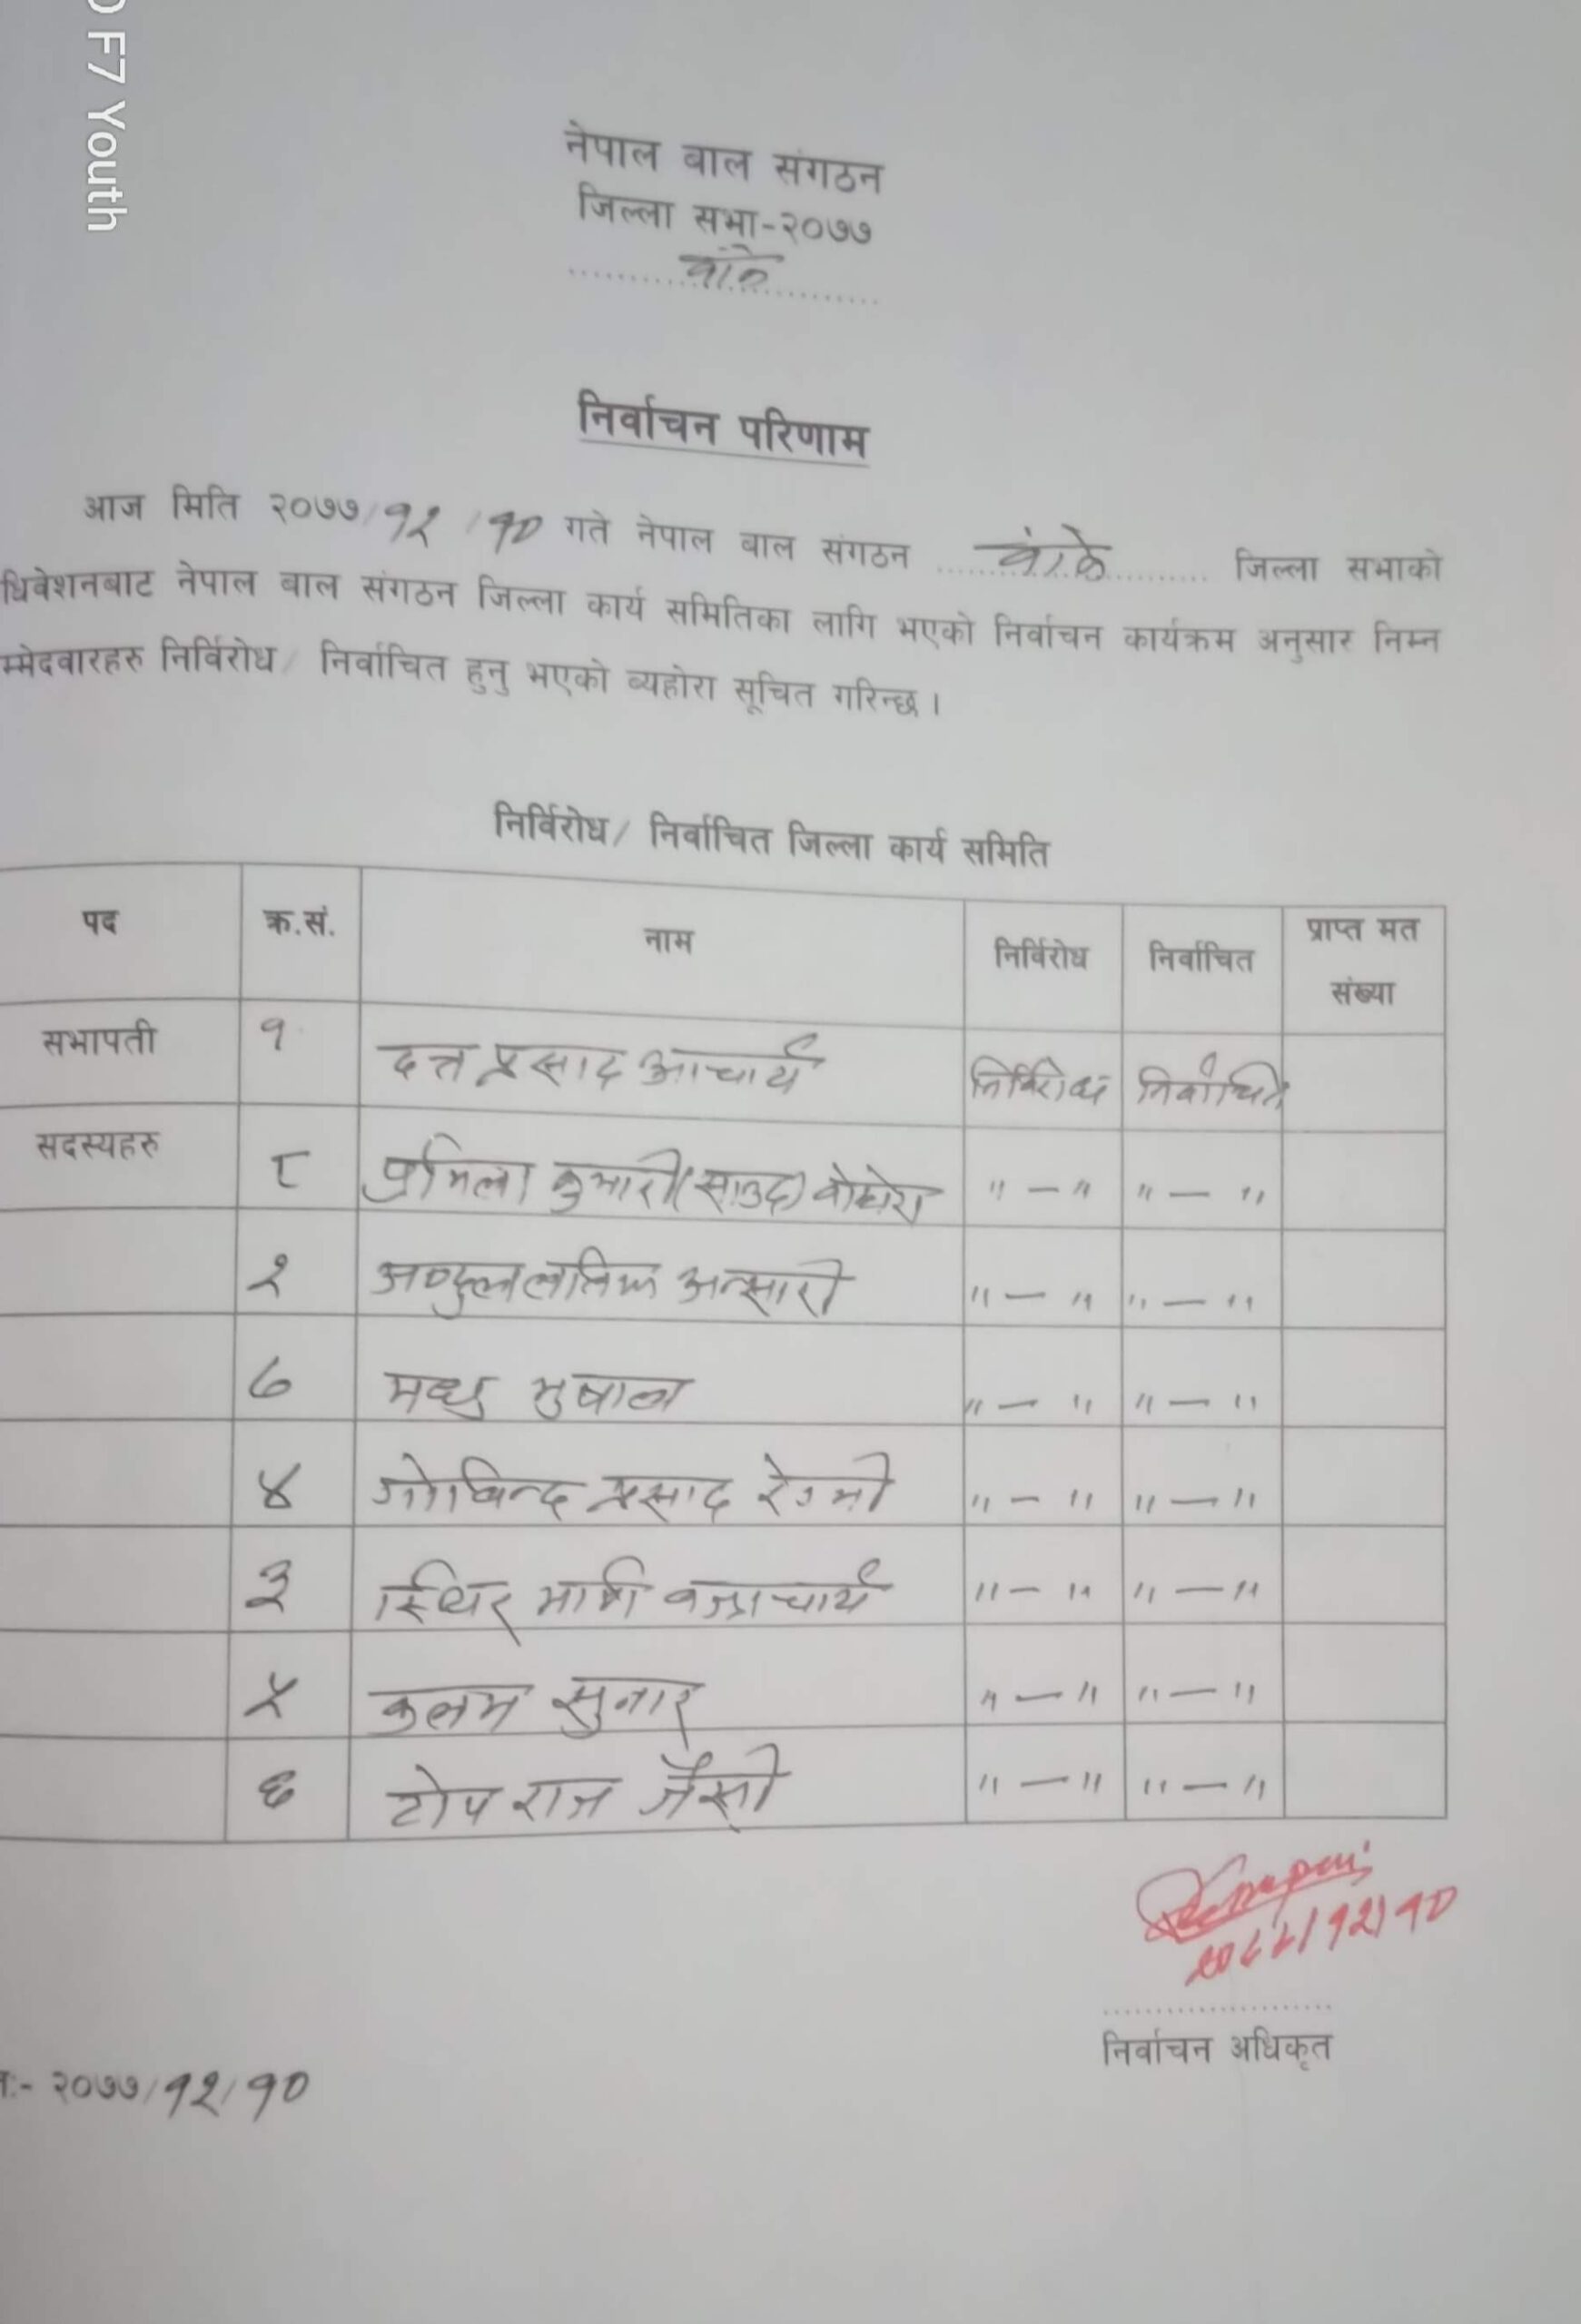 F7 Youth
नेपाल बाल संगठन
जिल्ला सभा-२०७७
बांके
निर्वाचन परिणाम
आज मिति २०७७/१२/१० गते नेपाल बाल संगठन ....बांके.... जिल्ला सभाको
धिवेशनबाट नेपाल बाल संगठन जिल्ला कार्य समितिका लागि भएको निर्वाचन कार्यक्रम अनुसार निम्न
म्मेदवारहरु निर्विरोध/ निर्वाचित हुनु भएको ब्यहोरा सूचित गरिन्छ ।
निर्विरोध/ निर्वाचित जिल्ला कार्य समिति
पद क्र.सं. नाम निर्विरोध निर्वाचित प्राप्त मत संख्या
सभापती १ दत्त प्रसाद आचार्य निर्विरोध निर्वाचित
सदस्यहरु ८ प्रमिला कुमारी (साउद) " - " " - "
२ अब्दुल लतिफ अन्सारी " - " " - "
७ मधु भुषाल " - " " - "
४ गोबिन्द प्रसाद रेग्मी " - " " - "
३ स्थिर मणि बज्राचार्य " - " " - "
५ कलम सुनार " - " " - "
६ टोप राज जैसी " - " " - "
२०७७/१२/१०
निर्वाचन अधिकृत
:- २०७७/१२/१०